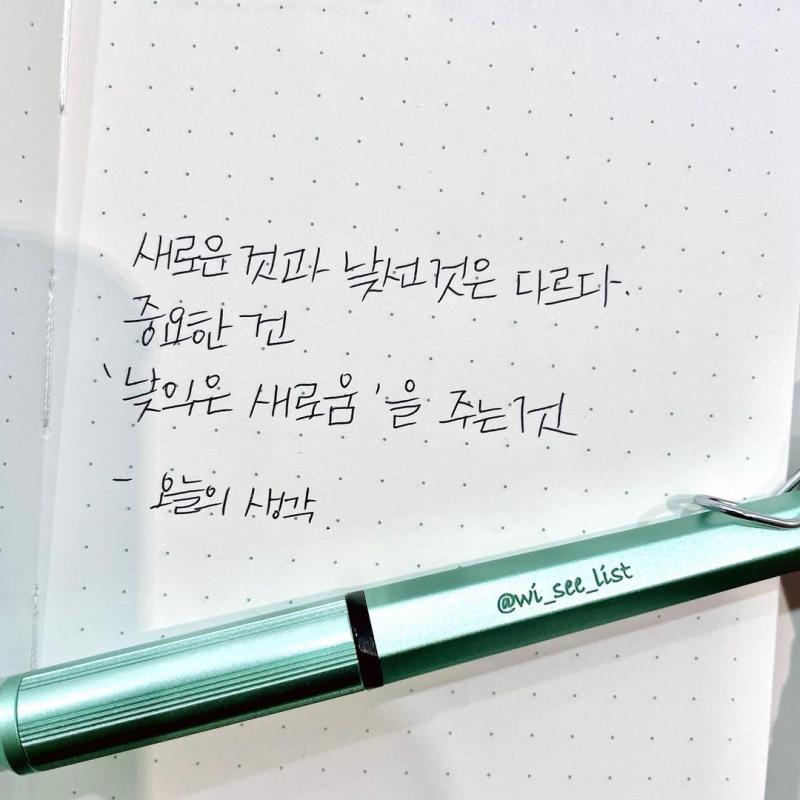 새로운 것과 낯선 것은 다르다.
중요한 건
'낯익은 새로움'을 주는 것
- 오늘의 생각.
@wi_see_list